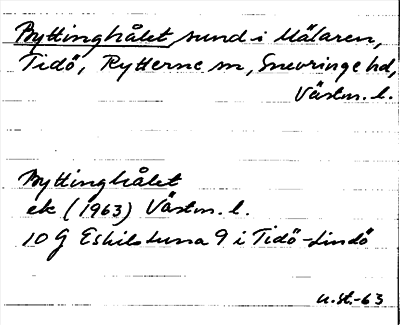 Byttinghålet, sund i Mälaren,
Tidö, Rytterne sn, Snevringe hd,
Västm. l.
Byttinghålet
ek (1963) Västm. l.
10 G Eskilstuna 9 i Tidö-Lindö
u.st.-63